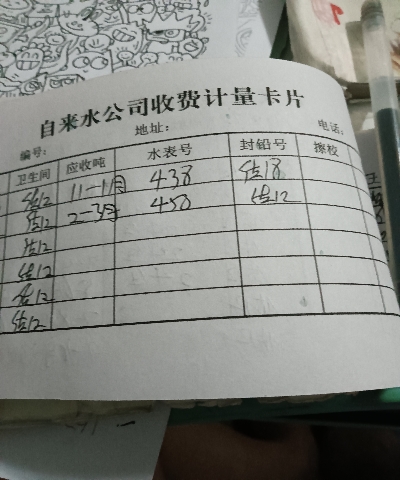 自来水公司收费计量卡片
编号： 地址： 电话：
卫生间 应收吨 水表号 封铅号 擦校
结12 11-1月 438 结18
结12 2-3月 450 结12
结12
结12
结12
结12